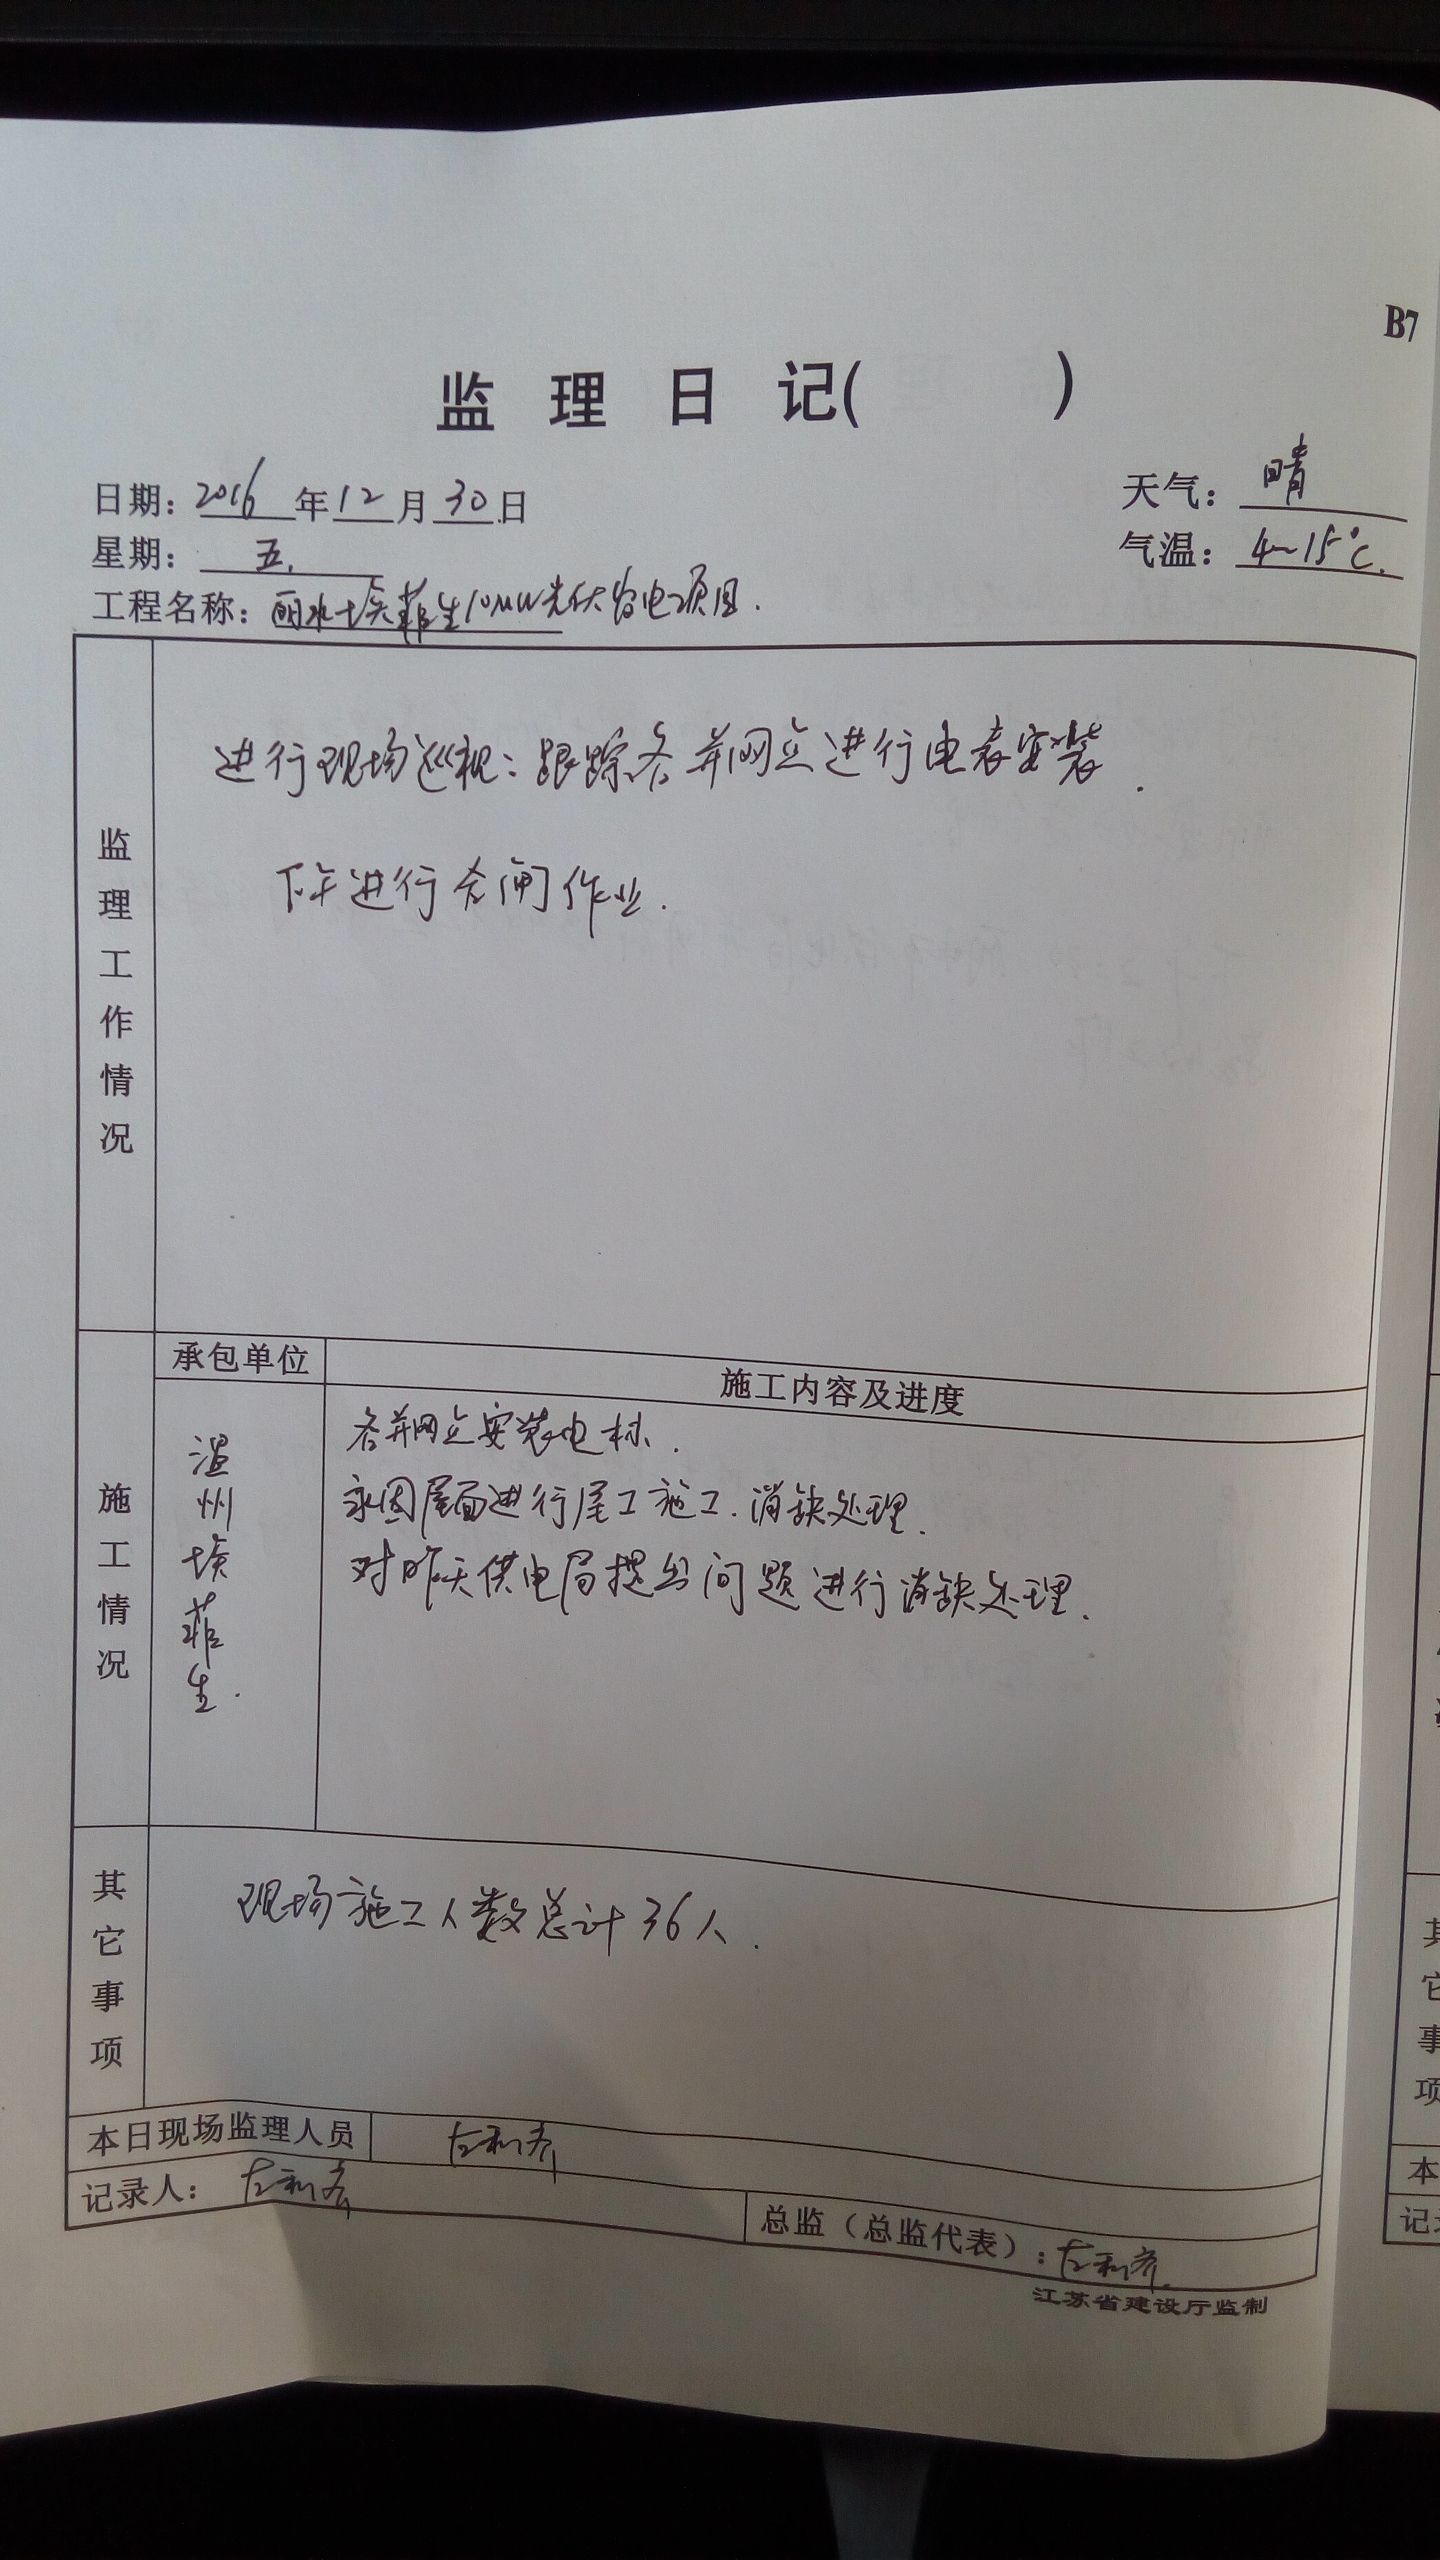 B7
监理日记(    )
日期：2016年12月30日
天气：晴
星期：五.
气温：4~15℃.
工程名称：丽水埃菲生10MW光伏发电项目.
监理工作情况
进行现场巡视：跟踪各并网点进行电表安装.
下午进行合闸作业.
施工情况
承包单位
施工内容及进度
温州埃菲生.
各并网点安装电标.
永固屋面进行尾工施工.消缺处理.
对昨天供电局提出问题进行消缺处理.
其它事项
现场施工人数总计36人.
本日现场监理人员
记录人：
总监（总监代表）：
江苏省建设厅监制
其
它
事
项
本